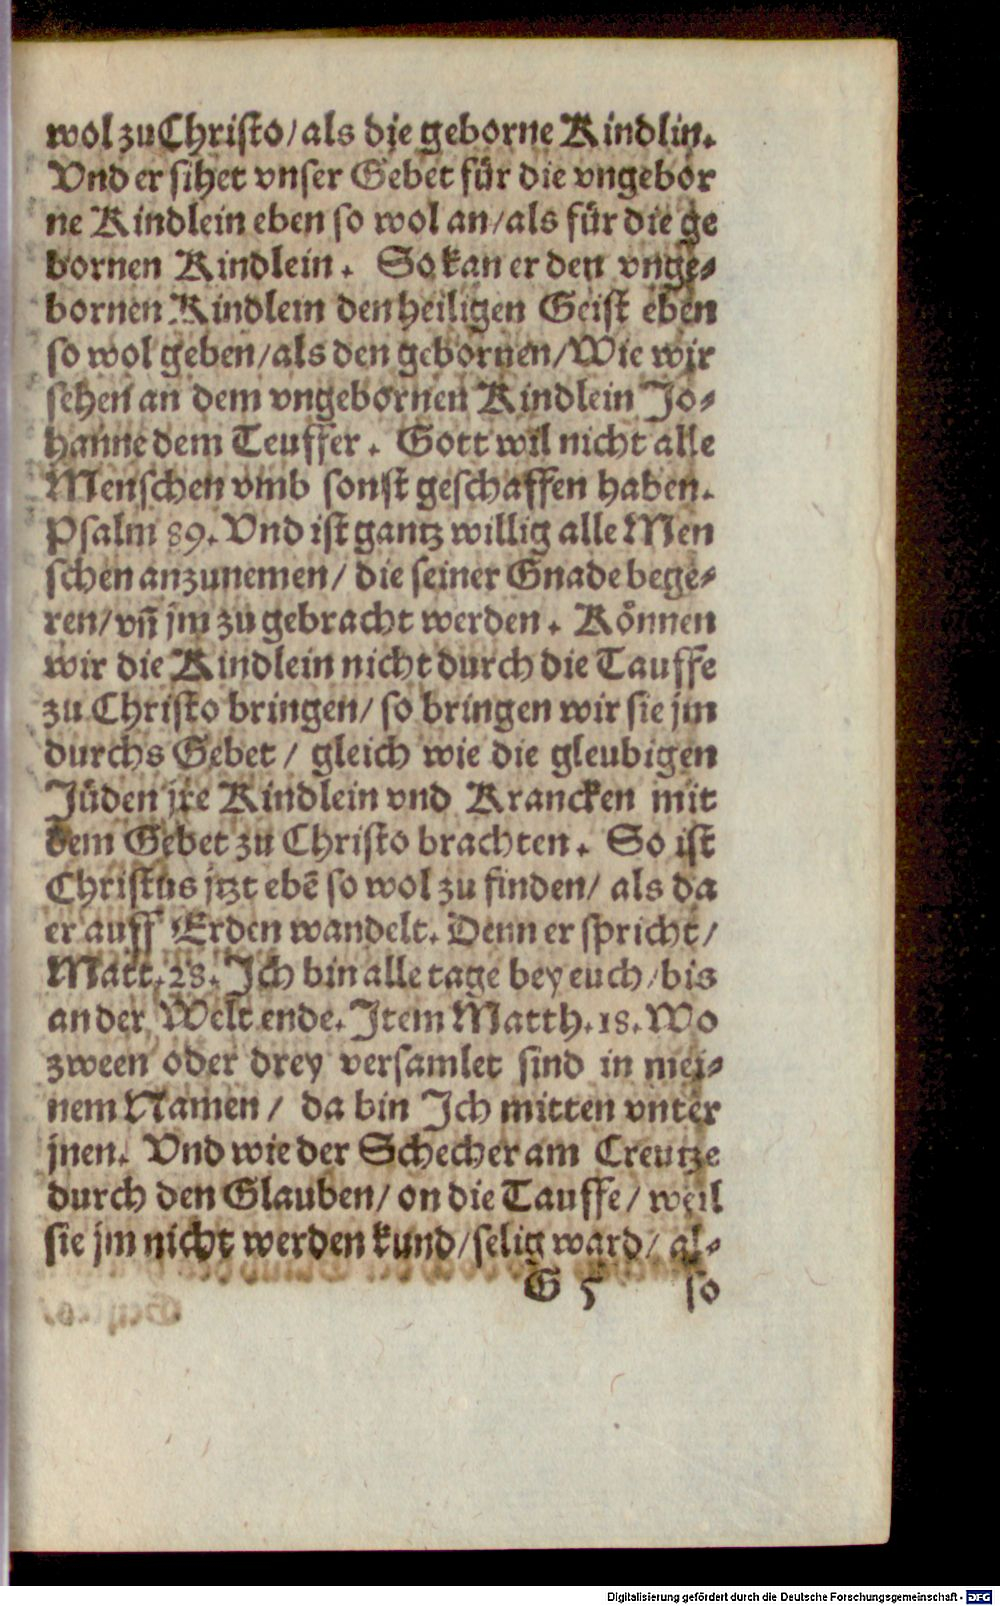 wol zu Christo/ als die geborne Kindlin.
Vnd er sihet vnser Gebet für die vngebor
ne Kindlein eben so wol an/ als für die ge
bornen Kindlein. So kan er den vnge-
bornen Kindlein den heiligen Geist eben
so wol geben/ als den gebornen/ Wie wir
sehen an dem vngebornen Kindlein Jo-
hanne dem Teuffer. Gott wil nicht alle
Menschen vmb sonst geschaffen haben.
Psalm 89. Vnd ist gantz willig alle Men
schen anzunemen/ die seiner Gnade bege-
ren/ vñ jm zu gebracht werden. Können
wir die Kindlein nicht durch die Tauffe
zu Christo bringen/ so bringen wir sie jm
durchs Gebet/ gleich wie die gleubigen
Jüden jre Kindlein vnd Krancken mit
dem Gebet zu Christo brachten. So ist
Christus jtzt ebē so wol zu finden/ als da
er auff Erden wandelt. Denn er spricht/
Matt. 28. Ich bin alle tage bey euch/ bis
an der Welt ende. Item Matth. 18. Wo
zween oder drey versamlet sind in mei-
nem Namen/ da bin Ich mitten vnter
jnen. Vnd wie der Schecher am Creutze
durch den Glauben/ on die Tauffe/ weil
sie jm nicht werden kund/ selig ward/ al-
G 5 so
Digitalisierung gefördert durch die Deutsche Forschungsgemeinschaft - DFG